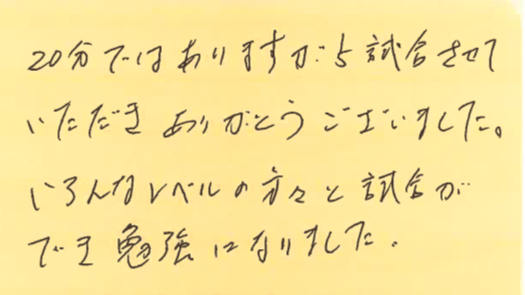 20分ではありますが5試合させて
いただきありがとうございました。
いろんなレベルの方々と試合が
でき勉強になりました。